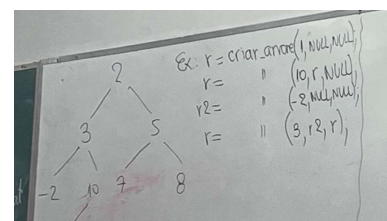 2
3 5
-2 10 7 8
Ex: r = criar_arvore(1, NULL, NULL);
r = " (10, r, NULL);
r2 = " (-2, NULL, NULL);
r = " (3, r2, r);